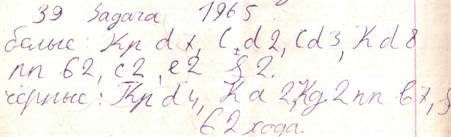 39 Задача 1965
белые: Кр d7, С d2, Cd3, Kd8
пп b2, c2, e2 g2.
чёрные: Кр d4, Ka2, Kg2 пп b7, g
в 2 хода.